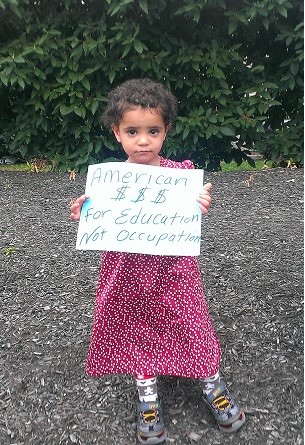 American
$ $ $
For Education
Not Occupation